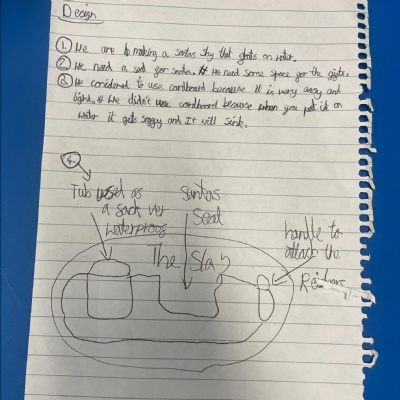 Design
1. We are making a santas slay that floats on water.
2. We need a seat for santa. We need some space for the gifts.
3. We considered to use cardboard because it is very easy and
light. We didn't use cardboard because when you put it on
water it gets soggy and It will sink.
4.
Tub used as
a sack ver
waterproof
santas
Seat
handle to
attach the
The Slay